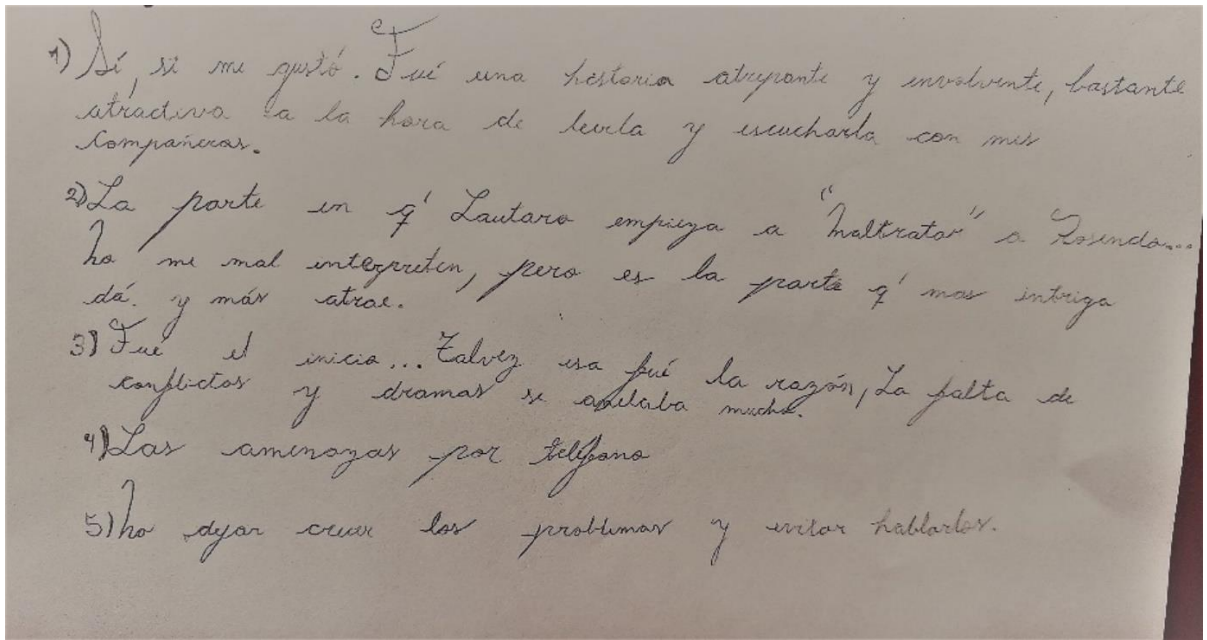 1) Sí, si me gustó. Fué una historia atrapante y envolvente, bastante
atractiva a la hora de leerla y escucharla con mis
compañeras.
2) La parte en q' Lautaro empieza a "maltratar" a Rosendo...
no me mal interpreten, pero es la parte q' mas intriga
dá. y más atrae.
3) Fué el inicio... Talvez esa fué la razón, La falta de
conflictos y dramas se anelaba mucho.
4) Las amenazas por teléfono
5) No dejar crecer los problemas y evitar hablarlos.